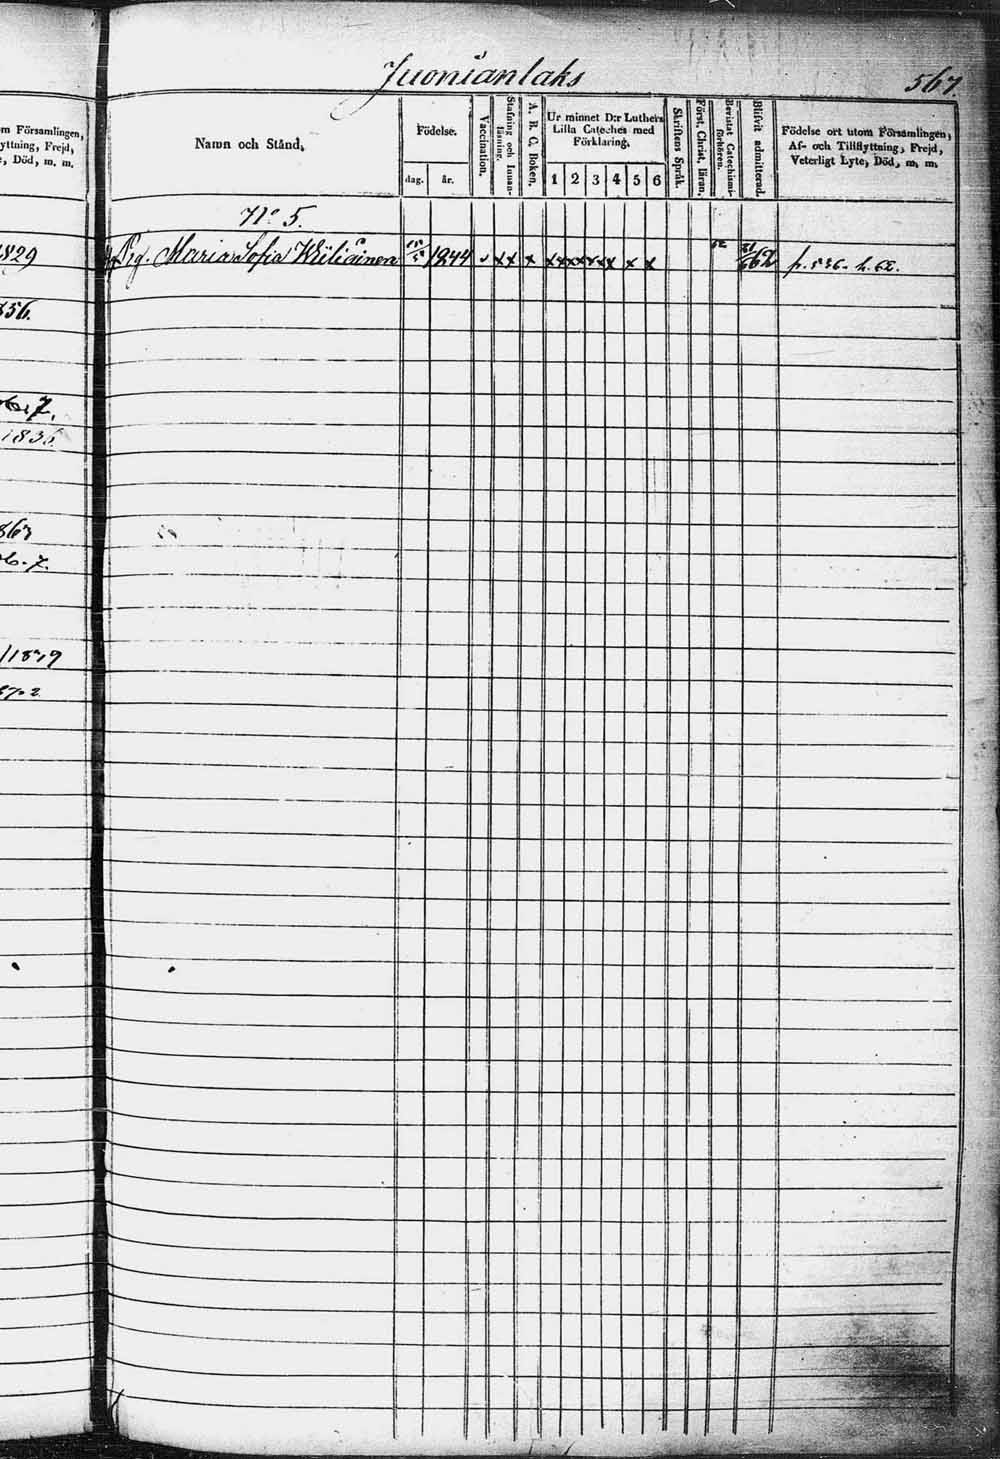 Juonianlaks
567.
om Församlingen,
yttning, Frejd,
e, Död, m. m.
Namn och Stånd,
Födelse.
dag.
år.
Vaccination.
Stafning och Innan-
läsning.
A. B. C. Boken.
Ur minnet D:r Luthers
Lilla Cateches med
Förklaring,
1 2 3 4 5 6
Skriftens Språk.
Först. Christ. läran.
Bevistat Catechismi-
förhören.
Blifvit admitterad.
Födelse ort utom Församlingen,
Af- och Tillflyttning, Frejd,
Veterligt Lyte, Död, m. m.
N:o 5.
Pig. Maria Sofia 1844 x x x x x x x x x x x x 62 p. 536. h. 62.
1829
856.
7.
1836
863
b. 7.
/1879